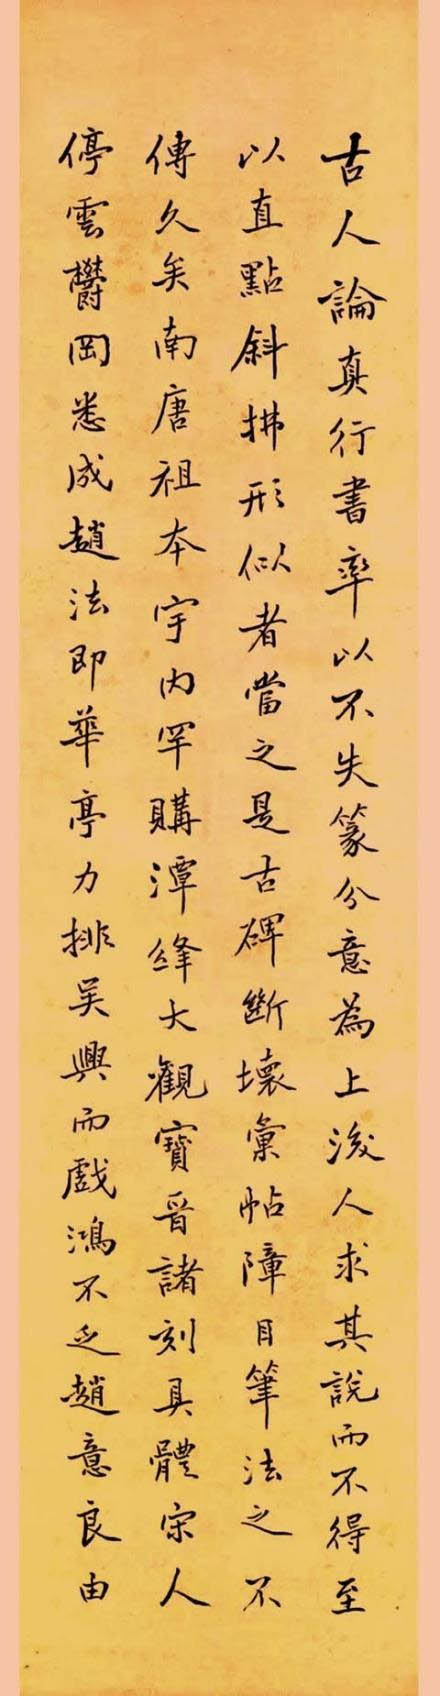 古人論真行書率以不失篆分意為上後人求其說而不得至
以直點斜拂形似者當之是古碑斷壞彙帖障目筆法之不
傳久矣南唐祖本宇內罕購潭絳大觀寶晉諸刻具體宋人
停雲欝岡悉成趙法即華亭力排吳興而戲鴻不乏趙意良由